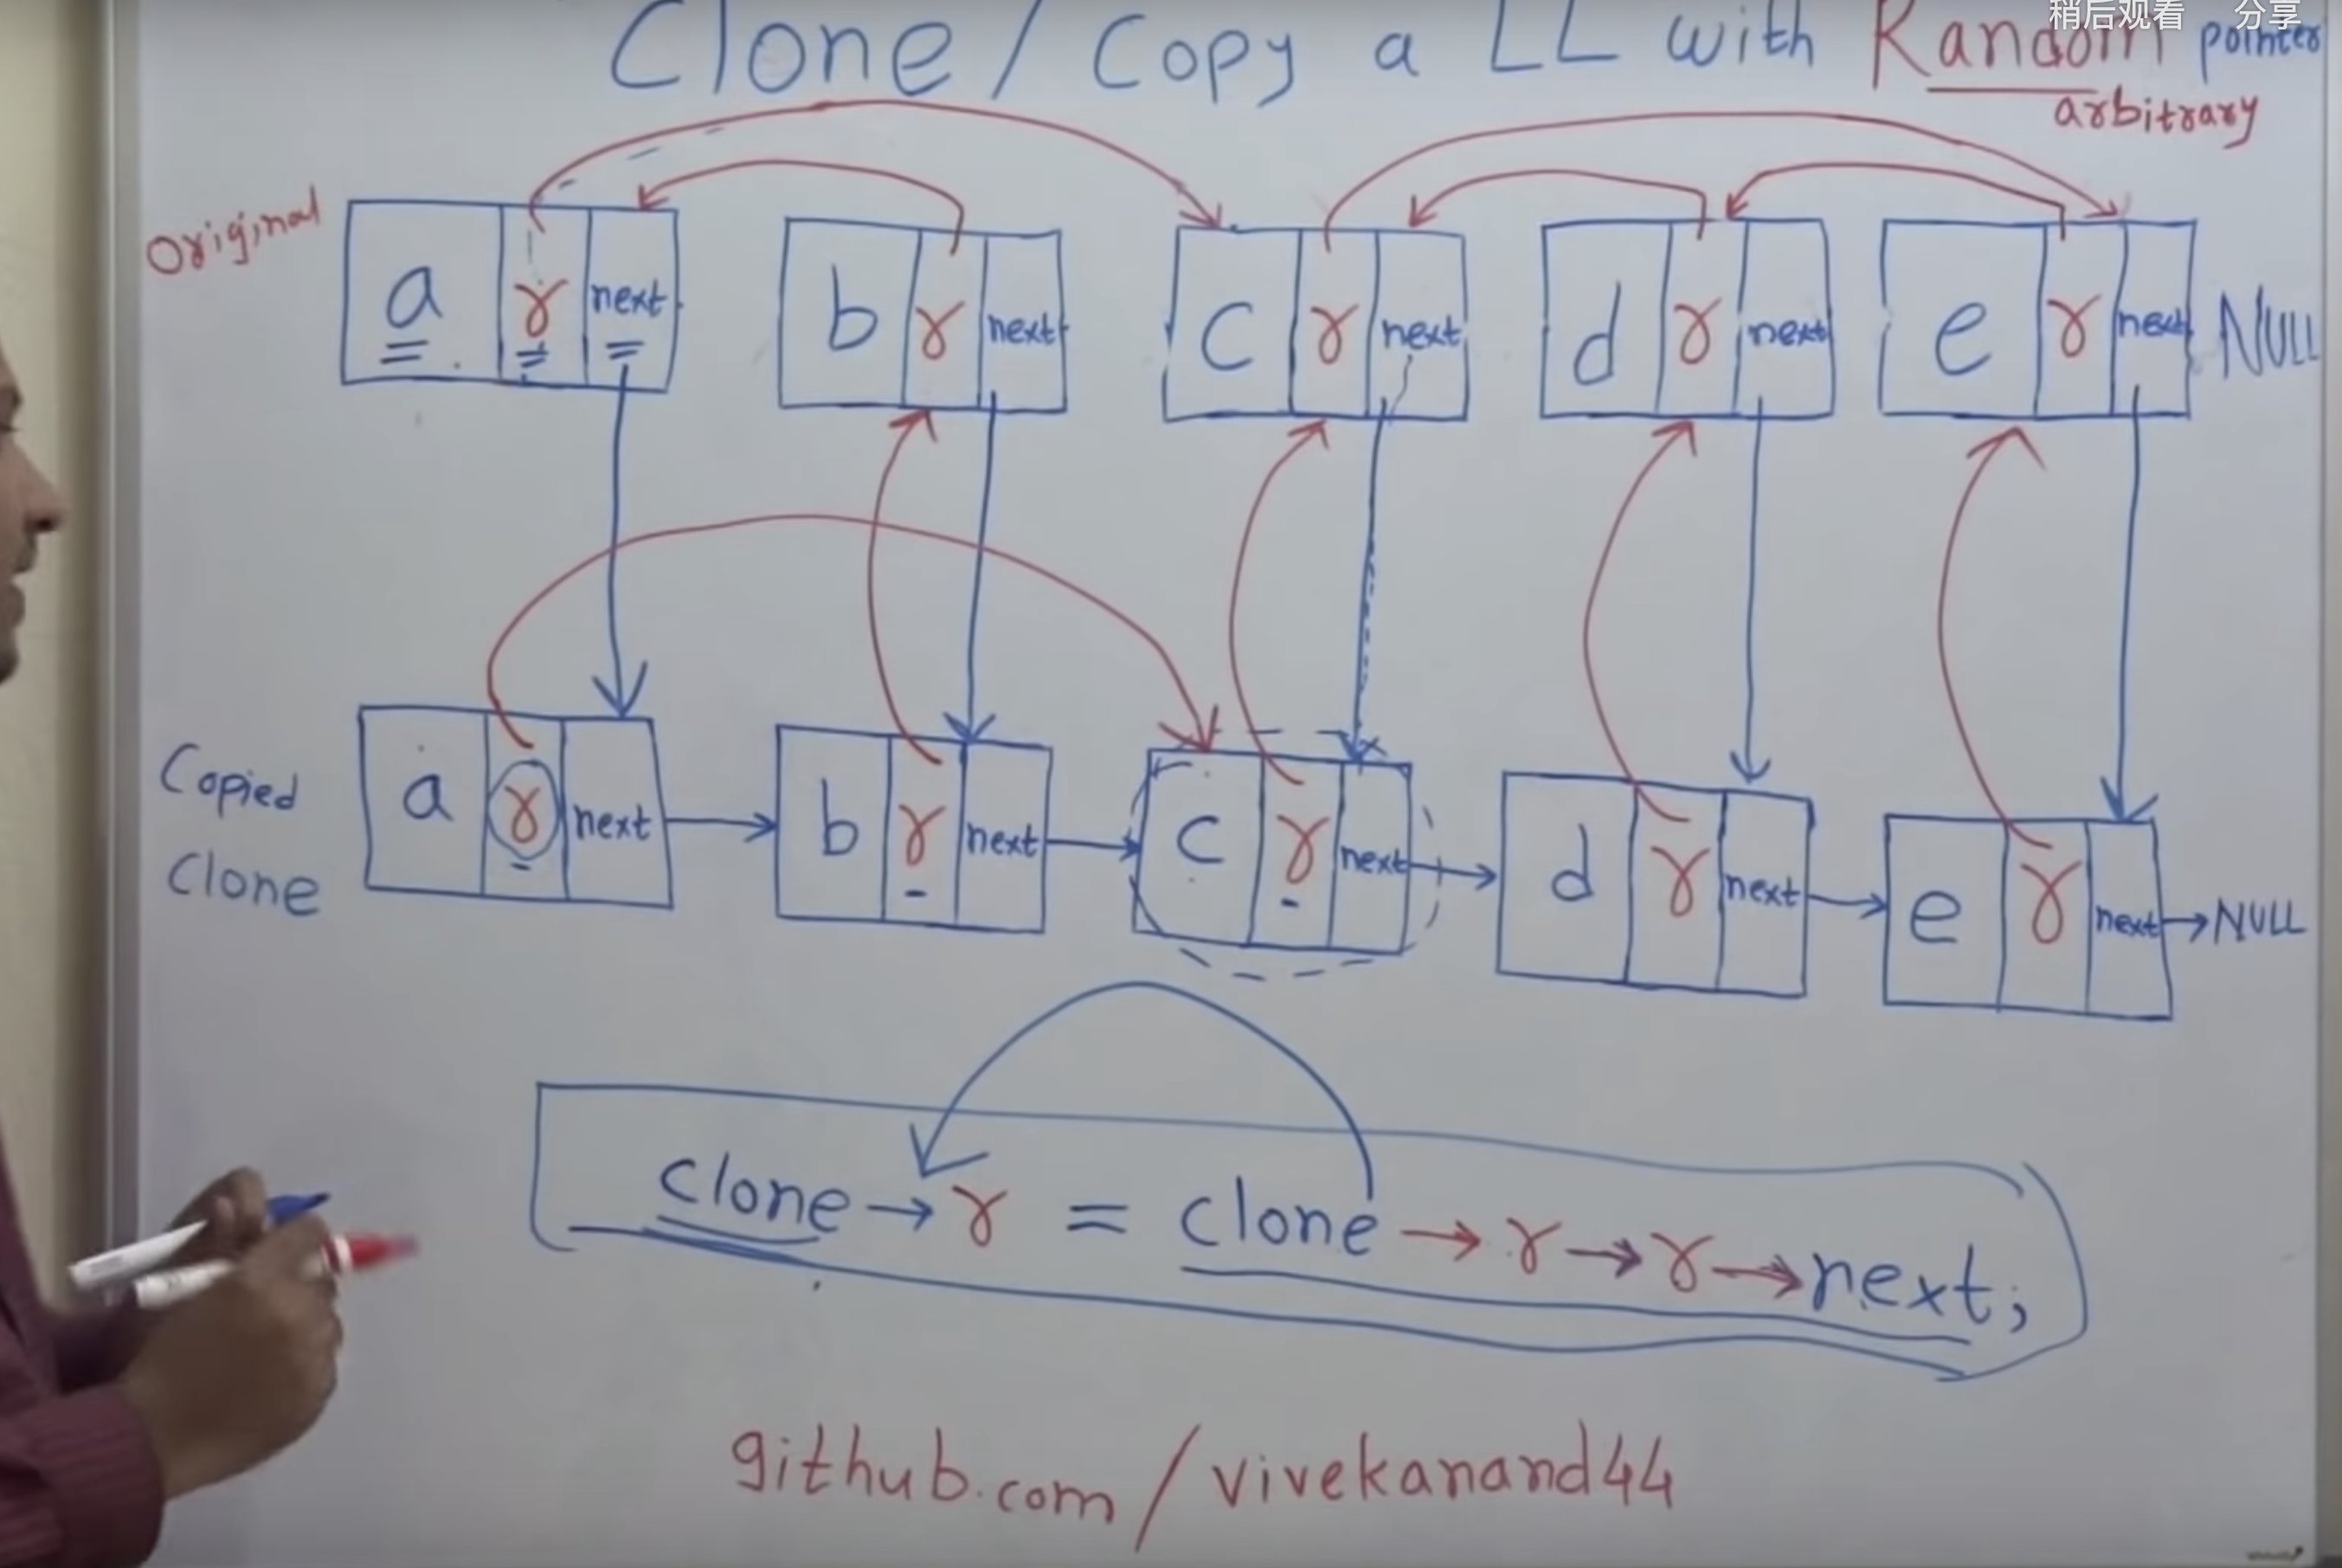 稍后观看 分享
Clone / Copy a LL with Random pointer
arbitrary
Original
a r next b r next c r next d r next e r next NULL
Copied
Clone
a r next → b r next → c r next → d r next → e r next → NULL
clone → r = clone → r → r → next;
github.com/vivekanand44